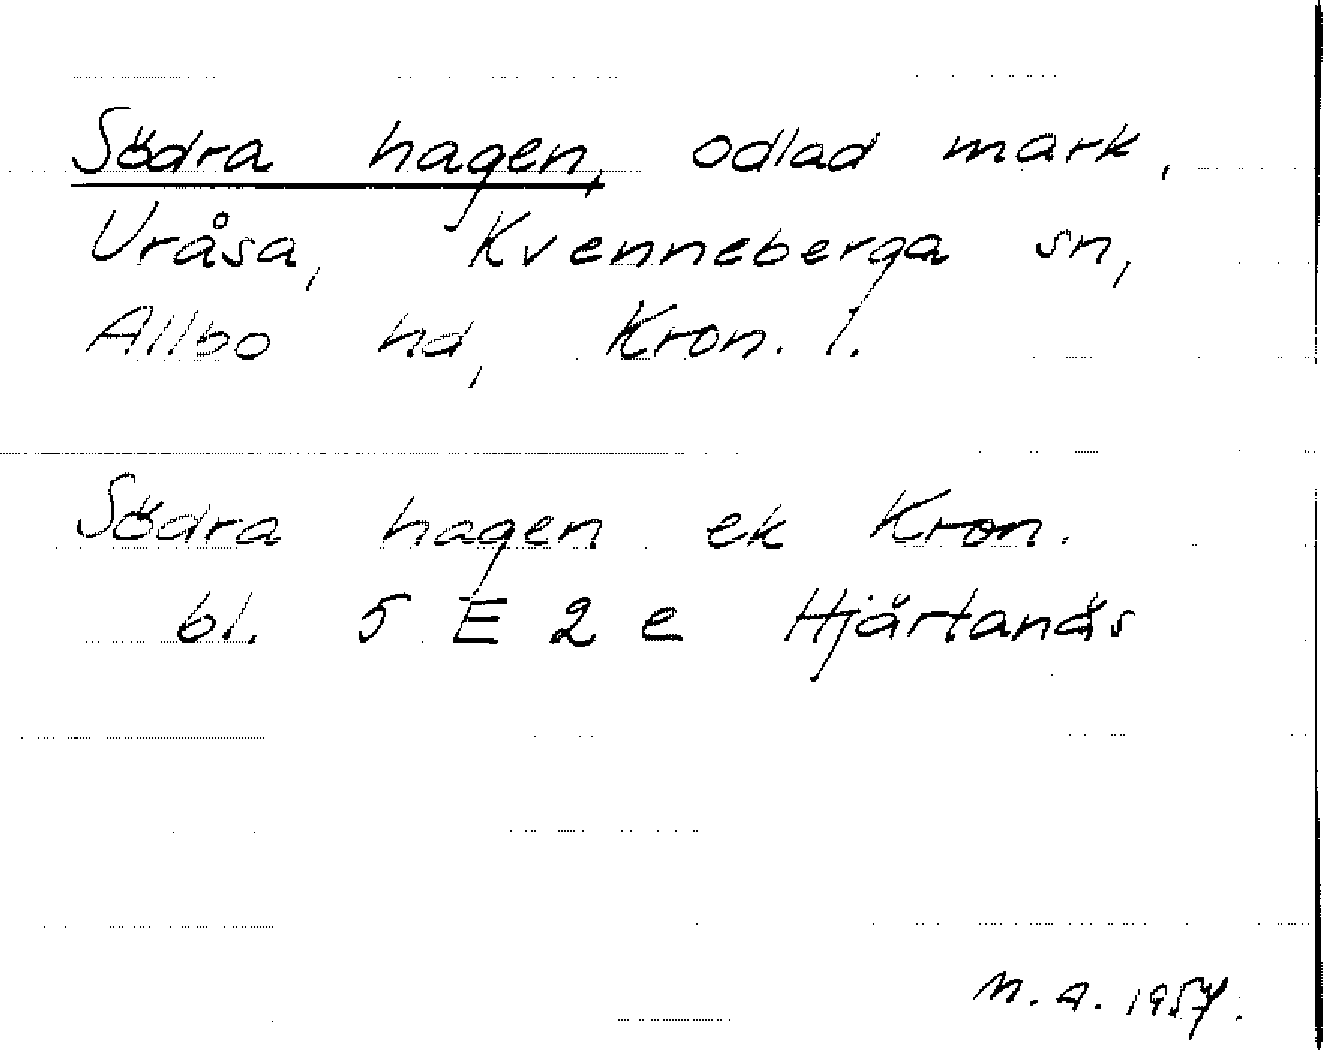 Södra hagen, odlad mark,
Uråsa, Kvenneberga sn,
Allbo hd, Kron. l.
Södra hagen ek Kron.
bl. 5 E 2 e Hjärtanäs
M. A. 1957.